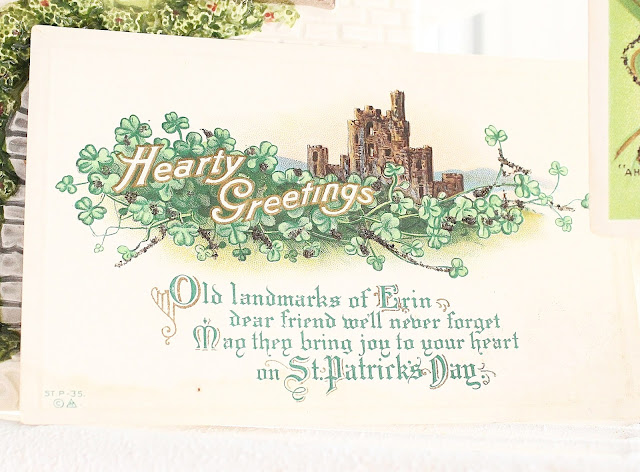 Hearty
Greetings
Old landmarks of Erin
dear friend we'll never forget
May they bring joy to your heart
on St. Patrick's Day.
ST. P-35.
©
"AH